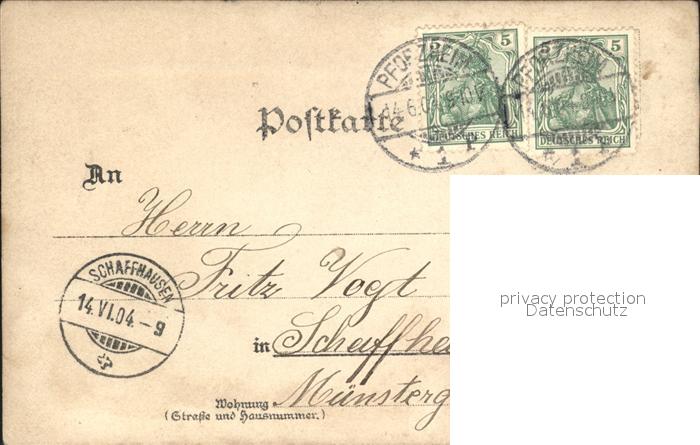 5 5
DEUTSCHES REICH DEUTSCHES REICH
PFORZHEIM PFORZHEIM
14.6.04
* 1 * 1
Postkarte
An
Herrn
Fritz Vogt
SCHAFFHAUSEN
14.VI.04.-9
in Schaffha
Wohnung Münsterg
(Straße und Hausnummer.)
privacy protection
Datenschutz